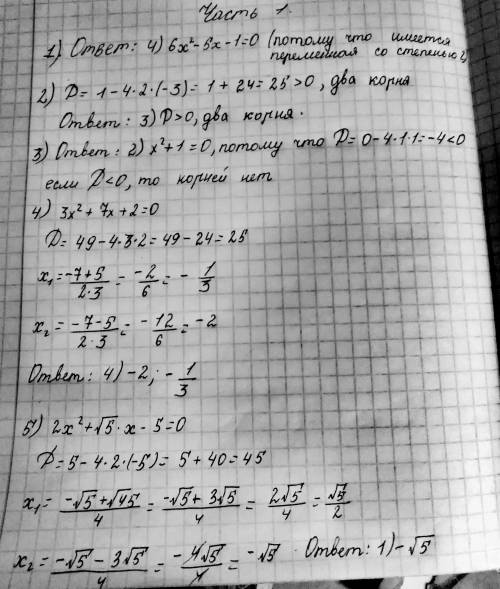 Часть 1.
1) Ответ: 4) 6x² - 5x - 1 = 0 (потому что имеется
переменная со степенью 2)
2) D = 1 - 4·2·(-3) = 1 + 24 = 25 > 0, два корня
Ответ: 3) D > 0, два корня.
3) Ответ: 2) x² + 1 = 0, потому что D = 0 - 4·1·1 = -4 < 0
если D < 0, то корней нет
4) 3x² + 7x + 2 = 0
D = 49 - 4·3·2 = 49 - 24 = 25
x₁ = (-7+5)/(2·3) = -2/6 = -1/3
x₂ = (-7-5)/(2·3) = -12/6 = -2
Ответ: 4) -2; -1/3
5) 2x² + √5·x - 5 = 0
D = 5 - 4·2·(-5) = 5 + 40 = 45
x₁ = (-√5 + √45)/4 = (-√5 + 3√5)/4 = 2√5/4 = √5/2
x₂ = (-√5 - 3√5)/4 = -4√5/4 = -√5 · Ответ: 1) -√5